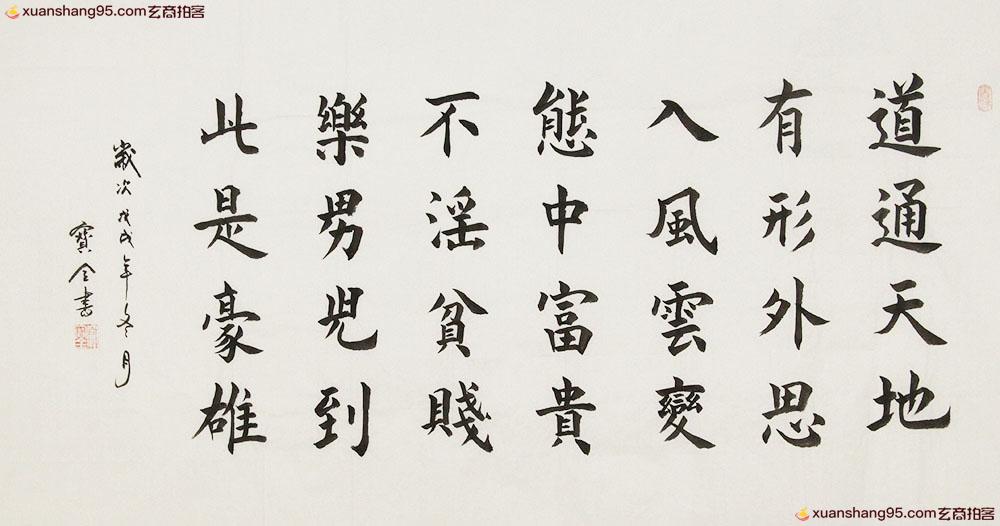 xuanshang95.com玄商拍客
道通天地
有形外思
入風雲變
態中富貴
不淫貧賤
樂男兒到
此是豪雄
歲次戊戌年冬月
寶全書
xuanshang95.com玄商拍客